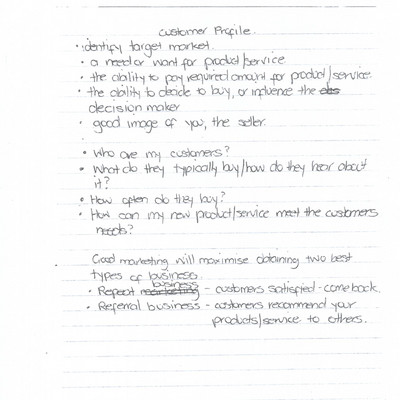 Customer Profile
• identify target market.
• a need or want for product/service
• the ability to pay required amount for product/service.
• the ability to decide to buy, or influence the
decision maker
• good image of you, the seller.
• Who are my customers?
• What do they typically buy/how do they hear about
it?
• How often do they buy?
• How can my new product/service meet the customers
needs?
Good marketing will maximise obtaining two best
types of business.
• Repeat business - customers satisfied - come back.
• Referral business - customers recommend your
products/service to others.